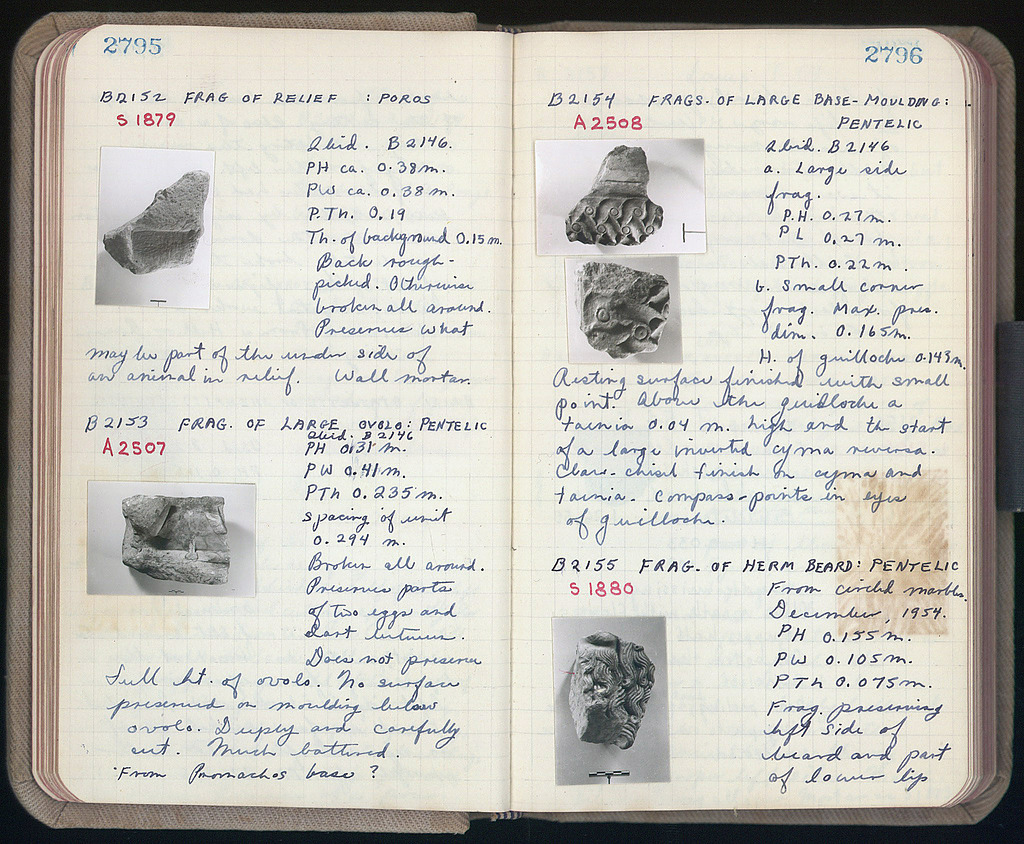 2795
B2152 FRAG OF RELIEF : POROS
S 1879
Ibid. B2146.
PH ca. 0.38m.
PW ca. 0.38m.
P.Th. 0.19
Th. of background 0.15m.
Back rough-
picked. Otherwise
broken all around.
Preserves what
may be part of the under side of
an animal in relief. Wall mortar.
B2153 FRAG. OF LARGE OVOLO: PENTELIC
A2507
Ibid. B2146
PH 0.31 m.
PW 0.41 m.
PTh 0.235 m.
spacing of unit
0.294 m.
Broken all around.
Preserves parts
of two eggs and
dart between.
Does not preserve
full ht. of ovolo. No surface
preserved on moulding below
ovolo. Deeply and carefully
cut. Much battered.
From Promachos base?
2796
B2154 FRAGS. OF LARGE BASE-MOULDING:
PENTELIC
A2508
Ibid. B2146
a. Large side
frag.
P.H. 0.27m.
PL 0.27 m.
PTh. 0.22m.
b. Small corner
frag. Max. pres.
dim. 0.165m.
H. of guilloche 0.143m.
Resting surface finished with small
point. Above the guilloche a
tainia 0.04 m. high and the start
of a large inverted cyma reversa.
Claw-chisel finish on cyma and
tainia. Compass-points in eyes
of guilloche.
B2155 FRAG. OF HERM BEARD: PENTELIC
S 1880
From circled marbles.
December, 1954.
PH 0.155m.
PW 0.105m.
PTh 0.075m.
Frag. preserving
left side of
beard and part
of lower lip